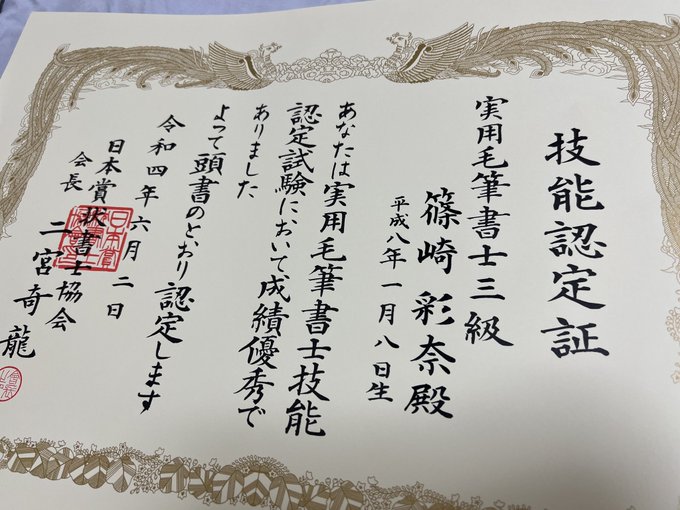 技能認定証
実用毛筆書士三級
篠崎彩奈殿
平成八年一月八日生
あなたは実用毛筆書士技能
認定試験において成績優秀で
ありました
よって頭書のとおり認定します
令和四年六月二日
日本賞状書士協会
会長 二宮奇龍